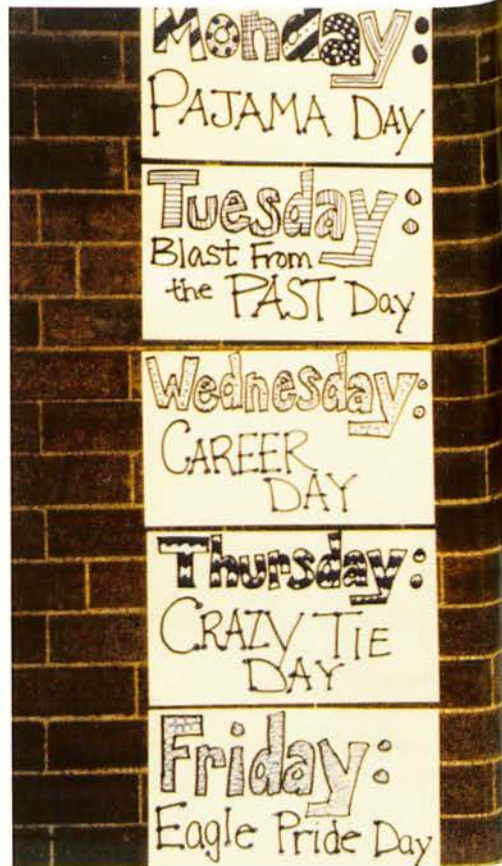 Monday:
PAJAMA DAY
Tuesday:
Blast From
the PAST Day
Wednesday:
CAREER
DAY
Thursday:
CRAZY TIE
DAY
Friday:
Eagle Pride Day